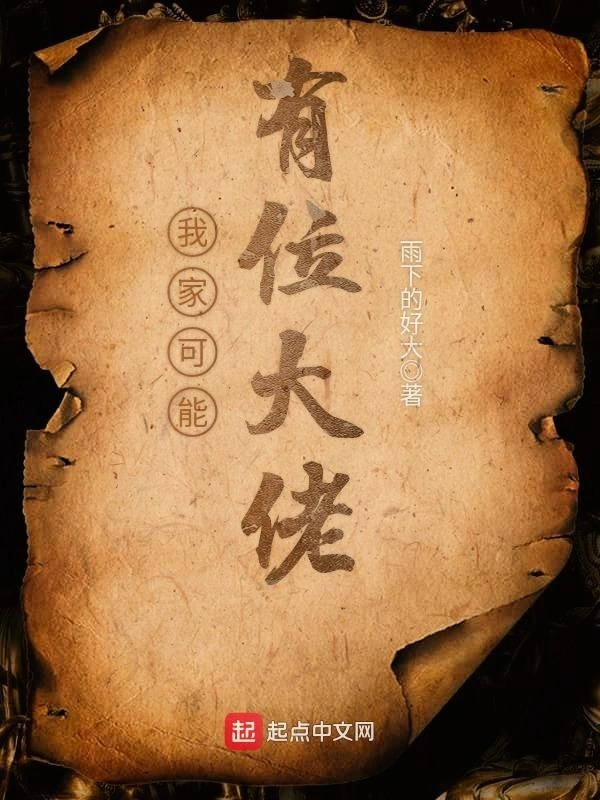 我家可能
有位大佬
雨下的好大◎著
起 起点中文网